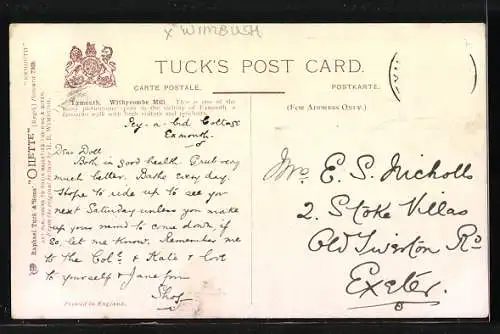 x WIMBUSH
TUCK'S POST CARD.
CARTE POSTALE.
POSTKARTE.
(FOR ADDRESS ONLY.)
Exmouth, Withycombe Mill. This is one of the
most picturesque spots in the vicinity of Exmouth, a
favourite walk with both visitors and residents.
Raphael Tuck & Sons' "OILETTE" [Regd.] Postcard 7309.
"EXMOUTH"
Printed in England.
Exmouth.
Dear Doll
Both in good health & rub very
much better. Baths every day.
Hope to ride up to see you
next Saturday unless you make
up your mind to come down if
so, let me know. Remember me
to the Col: & Kate & love
to yourself & Jane from
Mrs E. S. Nicholls
2. Stoke Villas
Old Tiverton Rd
Exeter.